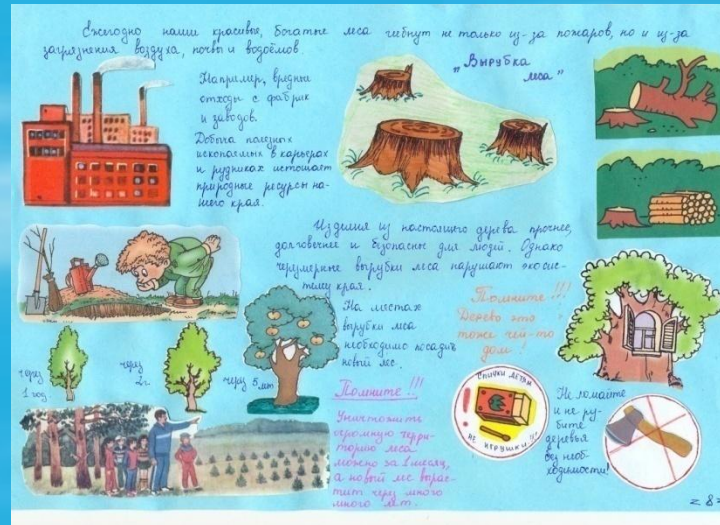 Ежегодно наши красивые, богатые леса гибнут не только из-за пожаров, но и из-за
загрязнения воздуха, почвы и водоёмов.
Например, вредные
отходы с фабрик
и заводов.
Добыча полезных
ископаемых в карьерах
и рудниках истощает
природные ресурсы на-
шего края.
„Вырубка
леса"
Изделия из настоящего дерева прочнее,
долговечнее и безопасны для людей. Однако
черумерные вырубки леса нарушают экосис-
тему края.
На местах
вырубки леса
необходимо посадить
новый лес.
через
1 год
через
2 г.
через 5 лет
Помните!!!
Дерево это
тоже чей-то
дом!
Помните!!!
Уничтожить
огромную терри-
торию леса
можно за 1 месяц,
а новый лес вырас-
тит через много
много лет.
СПИЧКИ ДЕТЯМ
НЕ ИГРУШКИ!!!
Не ломайте
и не ру-
бите
деревья
без необ-
ходимости!
~ 8 ~